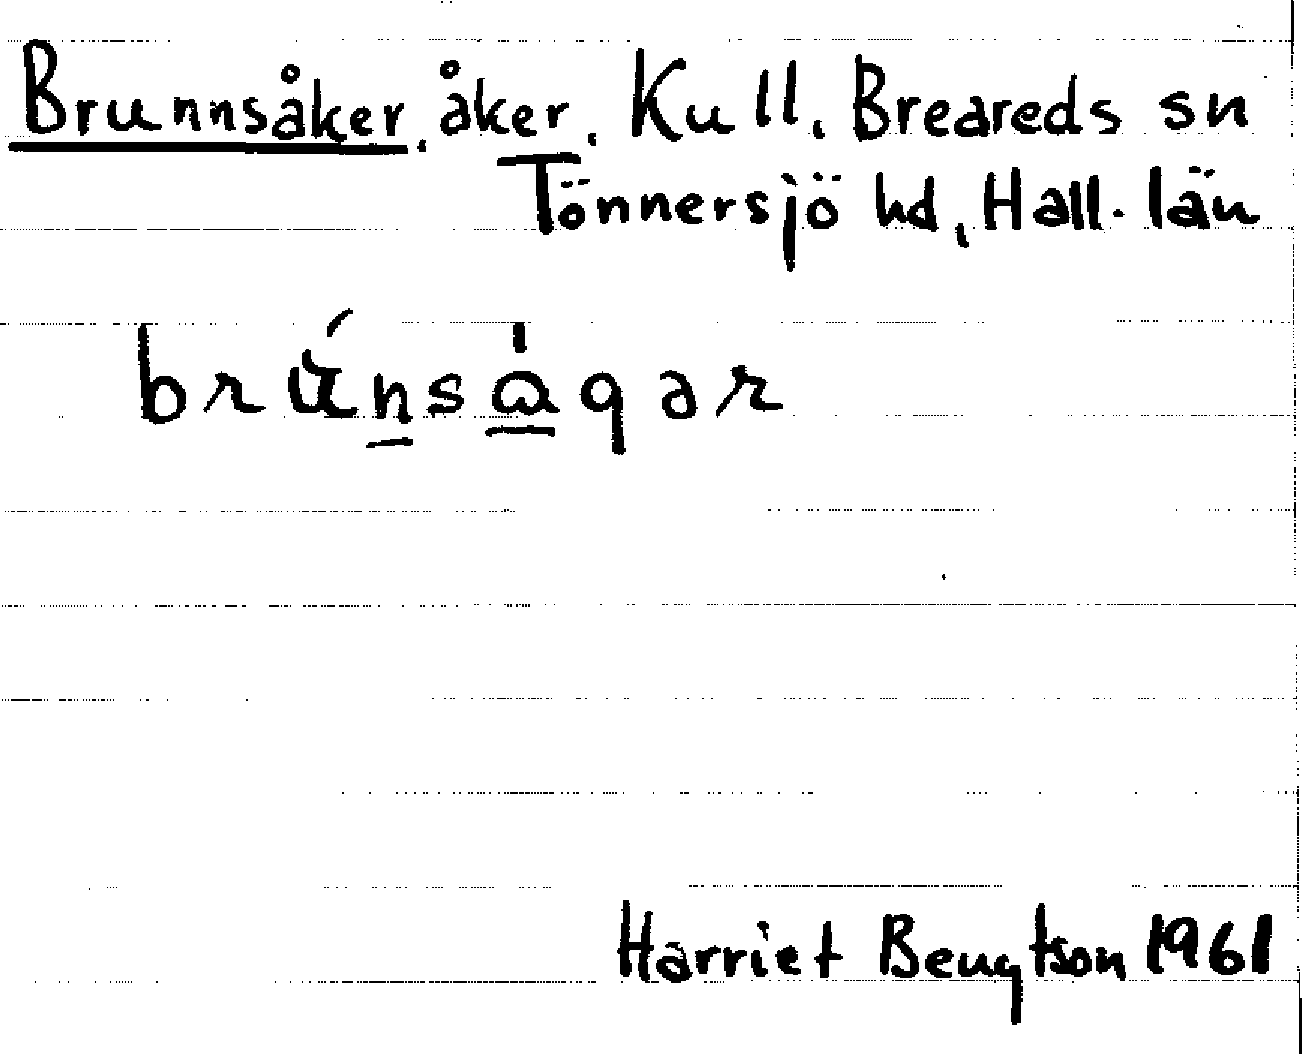 Brunnsåker, åker. Kull, Breareds sn
Tönnersjö hd, Hall. län
brúnsågar
Harriet Bengtson 1961